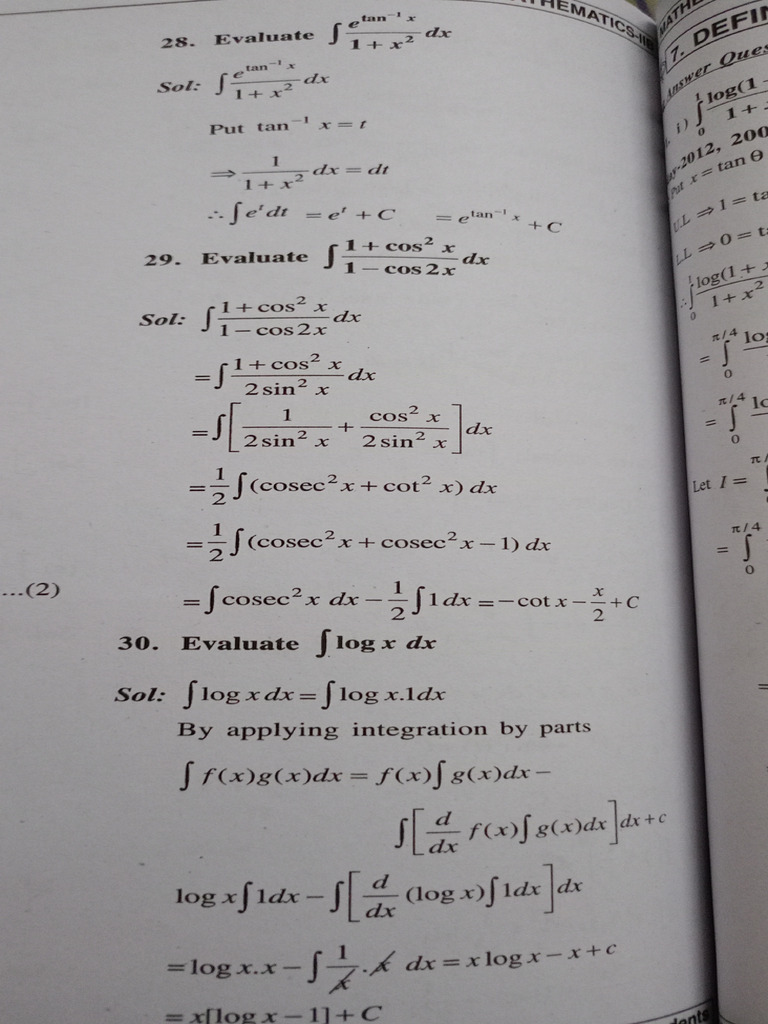 THEMATICS-IIB
28. Evaluate ∫ e^(tan⁻¹ x) / (1 + x²) dx
Sol: ∫ e^(tan⁻¹ x) / (1 + x²) dx
Put tan⁻¹ x = t
⇒ 1 / (1 + x²) dx = dt
∴ ∫ eᵗ dt = eᵗ + C = e^(tan⁻¹ x) + C
29. Evaluate ∫ (1 + cos² x) / (1 − cos 2x) dx
Sol: ∫ (1 + cos² x) / (1 − cos 2x) dx
= ∫ (1 + cos² x) / (2 sin² x) dx
= ∫ [ 1 / (2 sin² x) + cos² x / (2 sin² x) ] dx
= 1/2 ∫ (cosec² x + cot² x) dx
= 1/2 ∫ (cosec² x + cosec² x − 1) dx
...(2)
= ∫ cosec² x dx − 1/2 ∫ 1 dx = −cot x − x/2 + C
30. Evaluate ∫ log x dx
Sol: ∫ log x dx = ∫ log x.1dx
By applying integration by parts
∫ f(x)g(x)dx = f(x) ∫ g(x)dx −
∫ [ d/dx f(x) ∫ g(x)dx ] dx + c
log x ∫ 1dx − ∫ [ d/dx (log x) ∫ 1dx ] dx
= log x.x − ∫ 1/x . x dx = x log x − x + c
= x[log x − 1] + C
MATHE
7. DEFIN
Answer Ques
i) ∫₀¹ log(1 +
1 +
-2012, 200
Put x = tan θ
U.L ⇒ 1 = ta
L.L ⇒ 0 = t
∴ ∫₀¹ log(1 + x / 1 + x²
= ∫₀^(π/4) log
= ∫₀^(π/4) lo
Let I =
π/
= ∫₀^(π/4)
=
dents